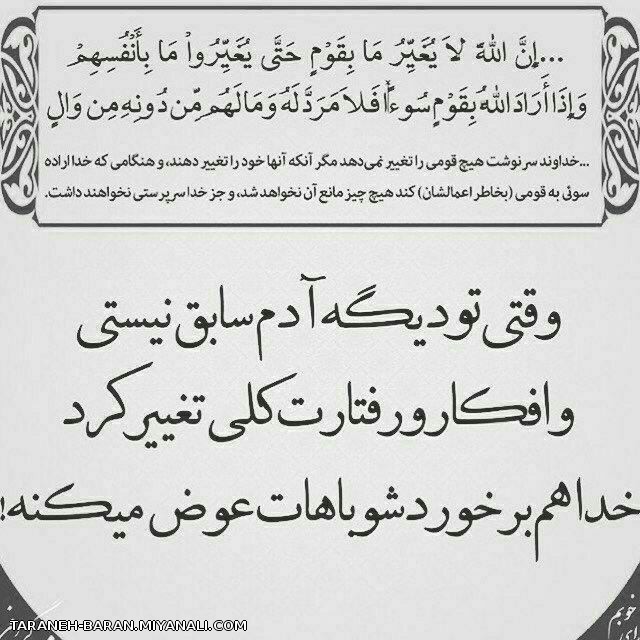 ...إِنَّ اللَّهَ لاَ يُغَيِّرُ مَا بِقَوْمٍ حَتَّى يُغَيِّرُواْ مَا بِأَنْفُسِهِمْ
وَإِذَا أَرَادَ اللَّهُ بِقَوْمٍ سُوءاً فَلاَ مَرَدَّ لَهُ وَمَا لَهُم مِّن دُونِهِ مِن وَالٍ
...خداوند سرنوشت هیچ قومی را تغییر نمی‌دهد مگر آنکه آنها خود را تغییر دهند، و هنگامی که خدا اراده
سوئی به قومی (بخاطر اعمالشان) کند هیچ چیز مانع آن نخواهد شد، و جز خدا سرپرستی نخواهند داشت.
وقتی تو دیگه آدم سابق نیستی
و افکار و رفتارت کلی تغییر کرد
خدا هم برخوردشو باهات عوض میکنه!
TARANEH-BARAN.MIYANALI.COM
خوبم